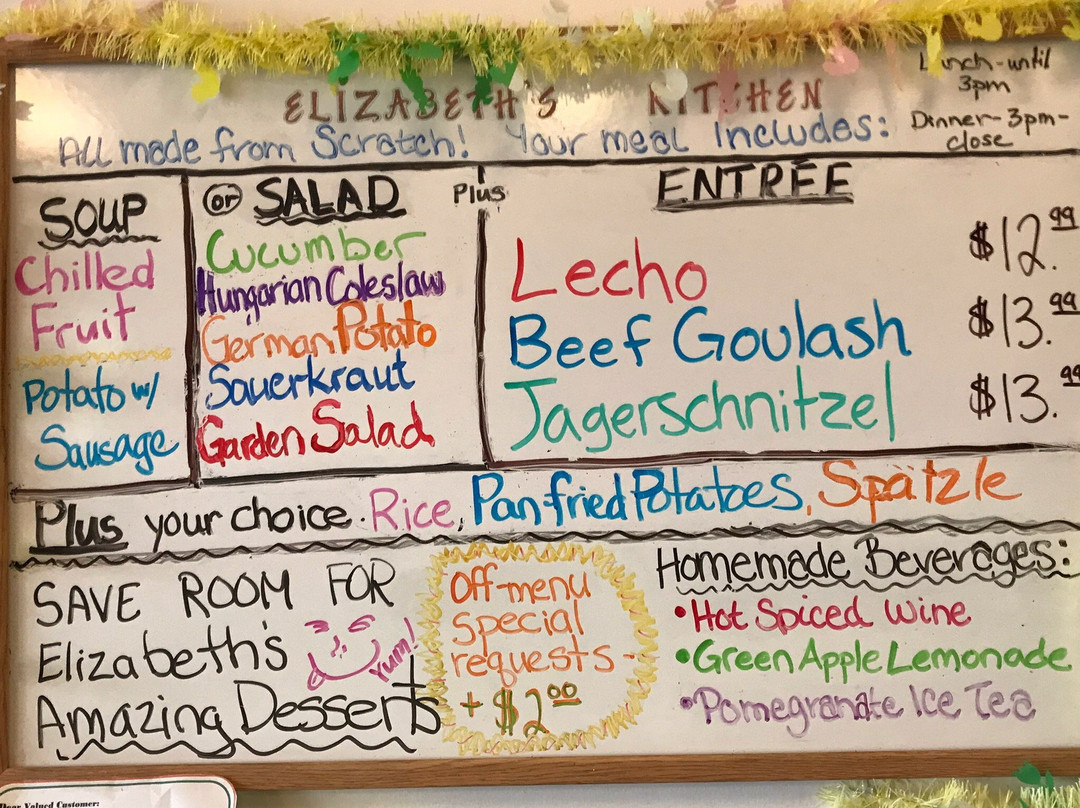 ELIZABETH'S KITCHEN
Lunch-until
3pm
Dinner-3pm-
close
All made from Scratch! Your meal Includes:
SOUP
Chilled
Fruit
Potato w/
Sausage
or SALAD
Cucumber
Hungarian Coleslaw
German Potato
Sauerkraut
Garden Salad
Plus
ENTRÉE
Lecho $12.99
Beef Goulash $13.99
Jagerschnitzel $13.99
Plus your choice. Rice, Panfried Potatoes, Spätzle
SAVE ROOM FOR
Elizabeth's
Amazing Desserts
Yum!
Off-menu
special
requests-
+ $2.00
Homemade Beverages:
•Hot Spiced Wine
•Green Apple Lemonade
•Pomegranate Ice Tea
Dear Valued Customer: